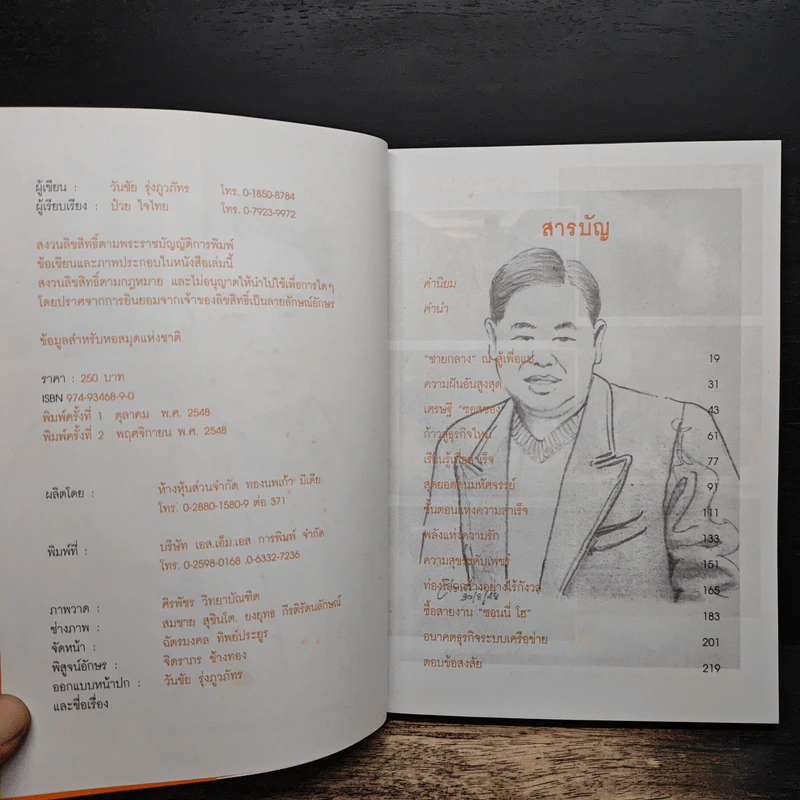 ผู้เขียน : วันชัย รุ่งภูวภัทร โทร. 0-1850-8784
ผู้เรียบเรียง : ป๋วย ใจไทย โทร. 0-7923-9972
สงวนลิขสิทธิ์ตามพระราชบัญญัติการพิมพ์
ข้อเขียนและภาพประกอบในหนังสือเล่มนี้
สงวนลิขสิทธิ์ตามกฎหมาย และไม่อนุญาตให้นำไปใช้เพื่อการใดๆ
โดยปราศจากการยินยอมจากเจ้าของลิขสิทธิ์เป็นลายลักษณ์อักษร
ข้อมูลสำหรับหอสมุดแห่งชาติ
ราคา : 250 บาท
ISBN 974-93468-9-0
พิมพ์ครั้งที่ 1 ตุลาคม พ.ศ. 2548
พิมพ์ครั้งที่ 2 พฤศจิกายน พ.ศ. 2548
ผลิตโดย : ห้างหุ้นส่วนจำกัด ทองนพเก้า มีเดีย
โทร. 0-2880-1580-9 ต่อ 371
พิมพ์ที่ : บริษัท เอส.เอ็ม.เอส การพิมพ์ จำกัด
โทร. 0-2598-0168 ,0-6332-7236
ภาพวาด : ศิรพัชร วิทยาบัณฑิต
ช่างภาพ : สมชาย สุชินโต, ยงยุทธ กีรติรัตนลักษณ์
จัดหน้า : ฉัตรมงคล ทิพย์ประยูร
พิสูจน์อักษร : จิตราภร ช้างทอง
ออกแบบหน้าปก : วันชัย รุ่งภูวภัทร
และชื่อเรื่อง
สารบัญ
คำนิยม
คำนำ
"ชายกลาง" ณ สู้เพื่อแม่ 19
ความฝันอันสูงสุด 31
เศรษฐี "ซอสซอง" 43
ก้าวสู่ธุรกิจใหม่ 61
เรียนรู้เพื่อสำเร็จ 77
สุดยอดคนมหัศจรรย์ 91
ขั้นตอนแห่งความสำเร็จ 111
พลังแห่งความรัก 133
ความสุขระดับเพชร 151
ท่องโลกกว้างอย่างไร้กังวล 165
ซื้อสายงาน "ซอนนี่ โฮ" 183
อนาคตธุรกิจระบบเครือข่าย 201
ตอบข้อสงสัย 219